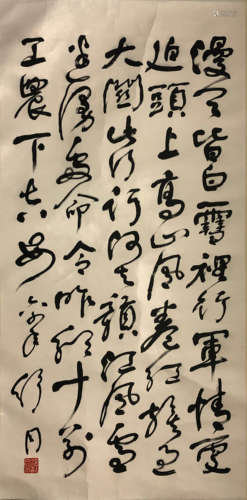 漫天皆白雪裡行軍情更
迫頭上高山風卷红旗過
大關此行何去贛江風雪
迷漫處命令昨頒十万
工農下吉安 舒同